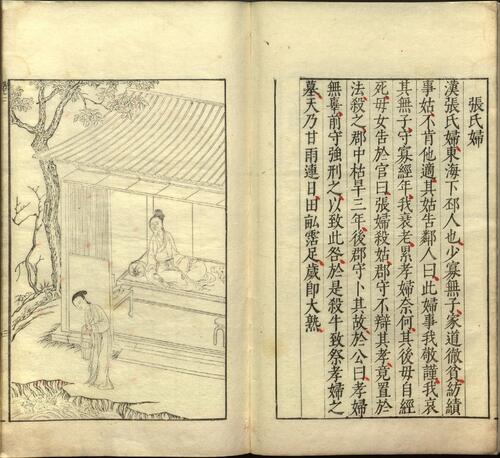 張氏婦
漢張氏婦東海下邳人也少寡無子家道徹貧紡績
事姑不肯他適其姑告鄰人曰此婦事我敬謹我哀
其無子守寡經年我衰老累孝婦奈何其後毋自經
死毋女告於官曰張婦殺姑郡守不辯其孝竟置於
法殺之郡中枯旱三年後郡守卜其故於公曰孝婦
無辜前守強刑之以致此咎於是殺牛致祭孝婦之
墓天乃甘雨連日田畝霑足歲即大熟